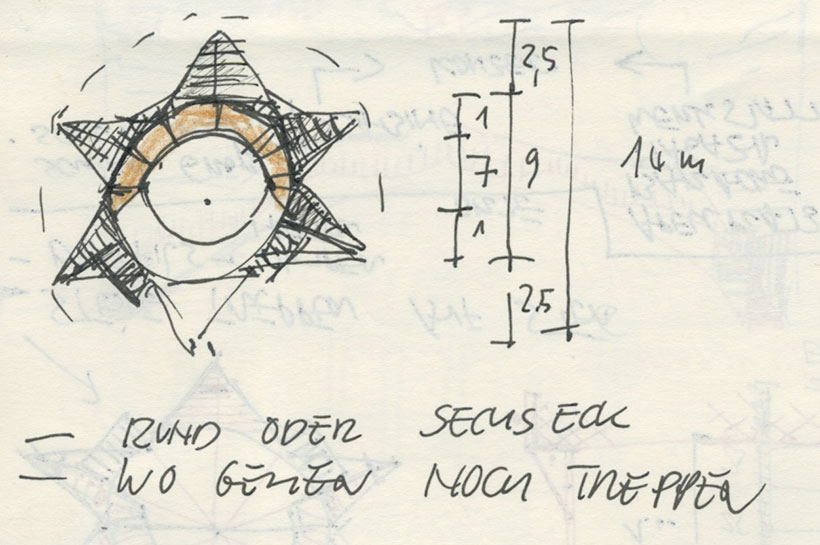 2,5
1
7 9 14 m
1
2,5
— RUND ODER SECHSECK
— WO GEHEN NOCH TREPPEN